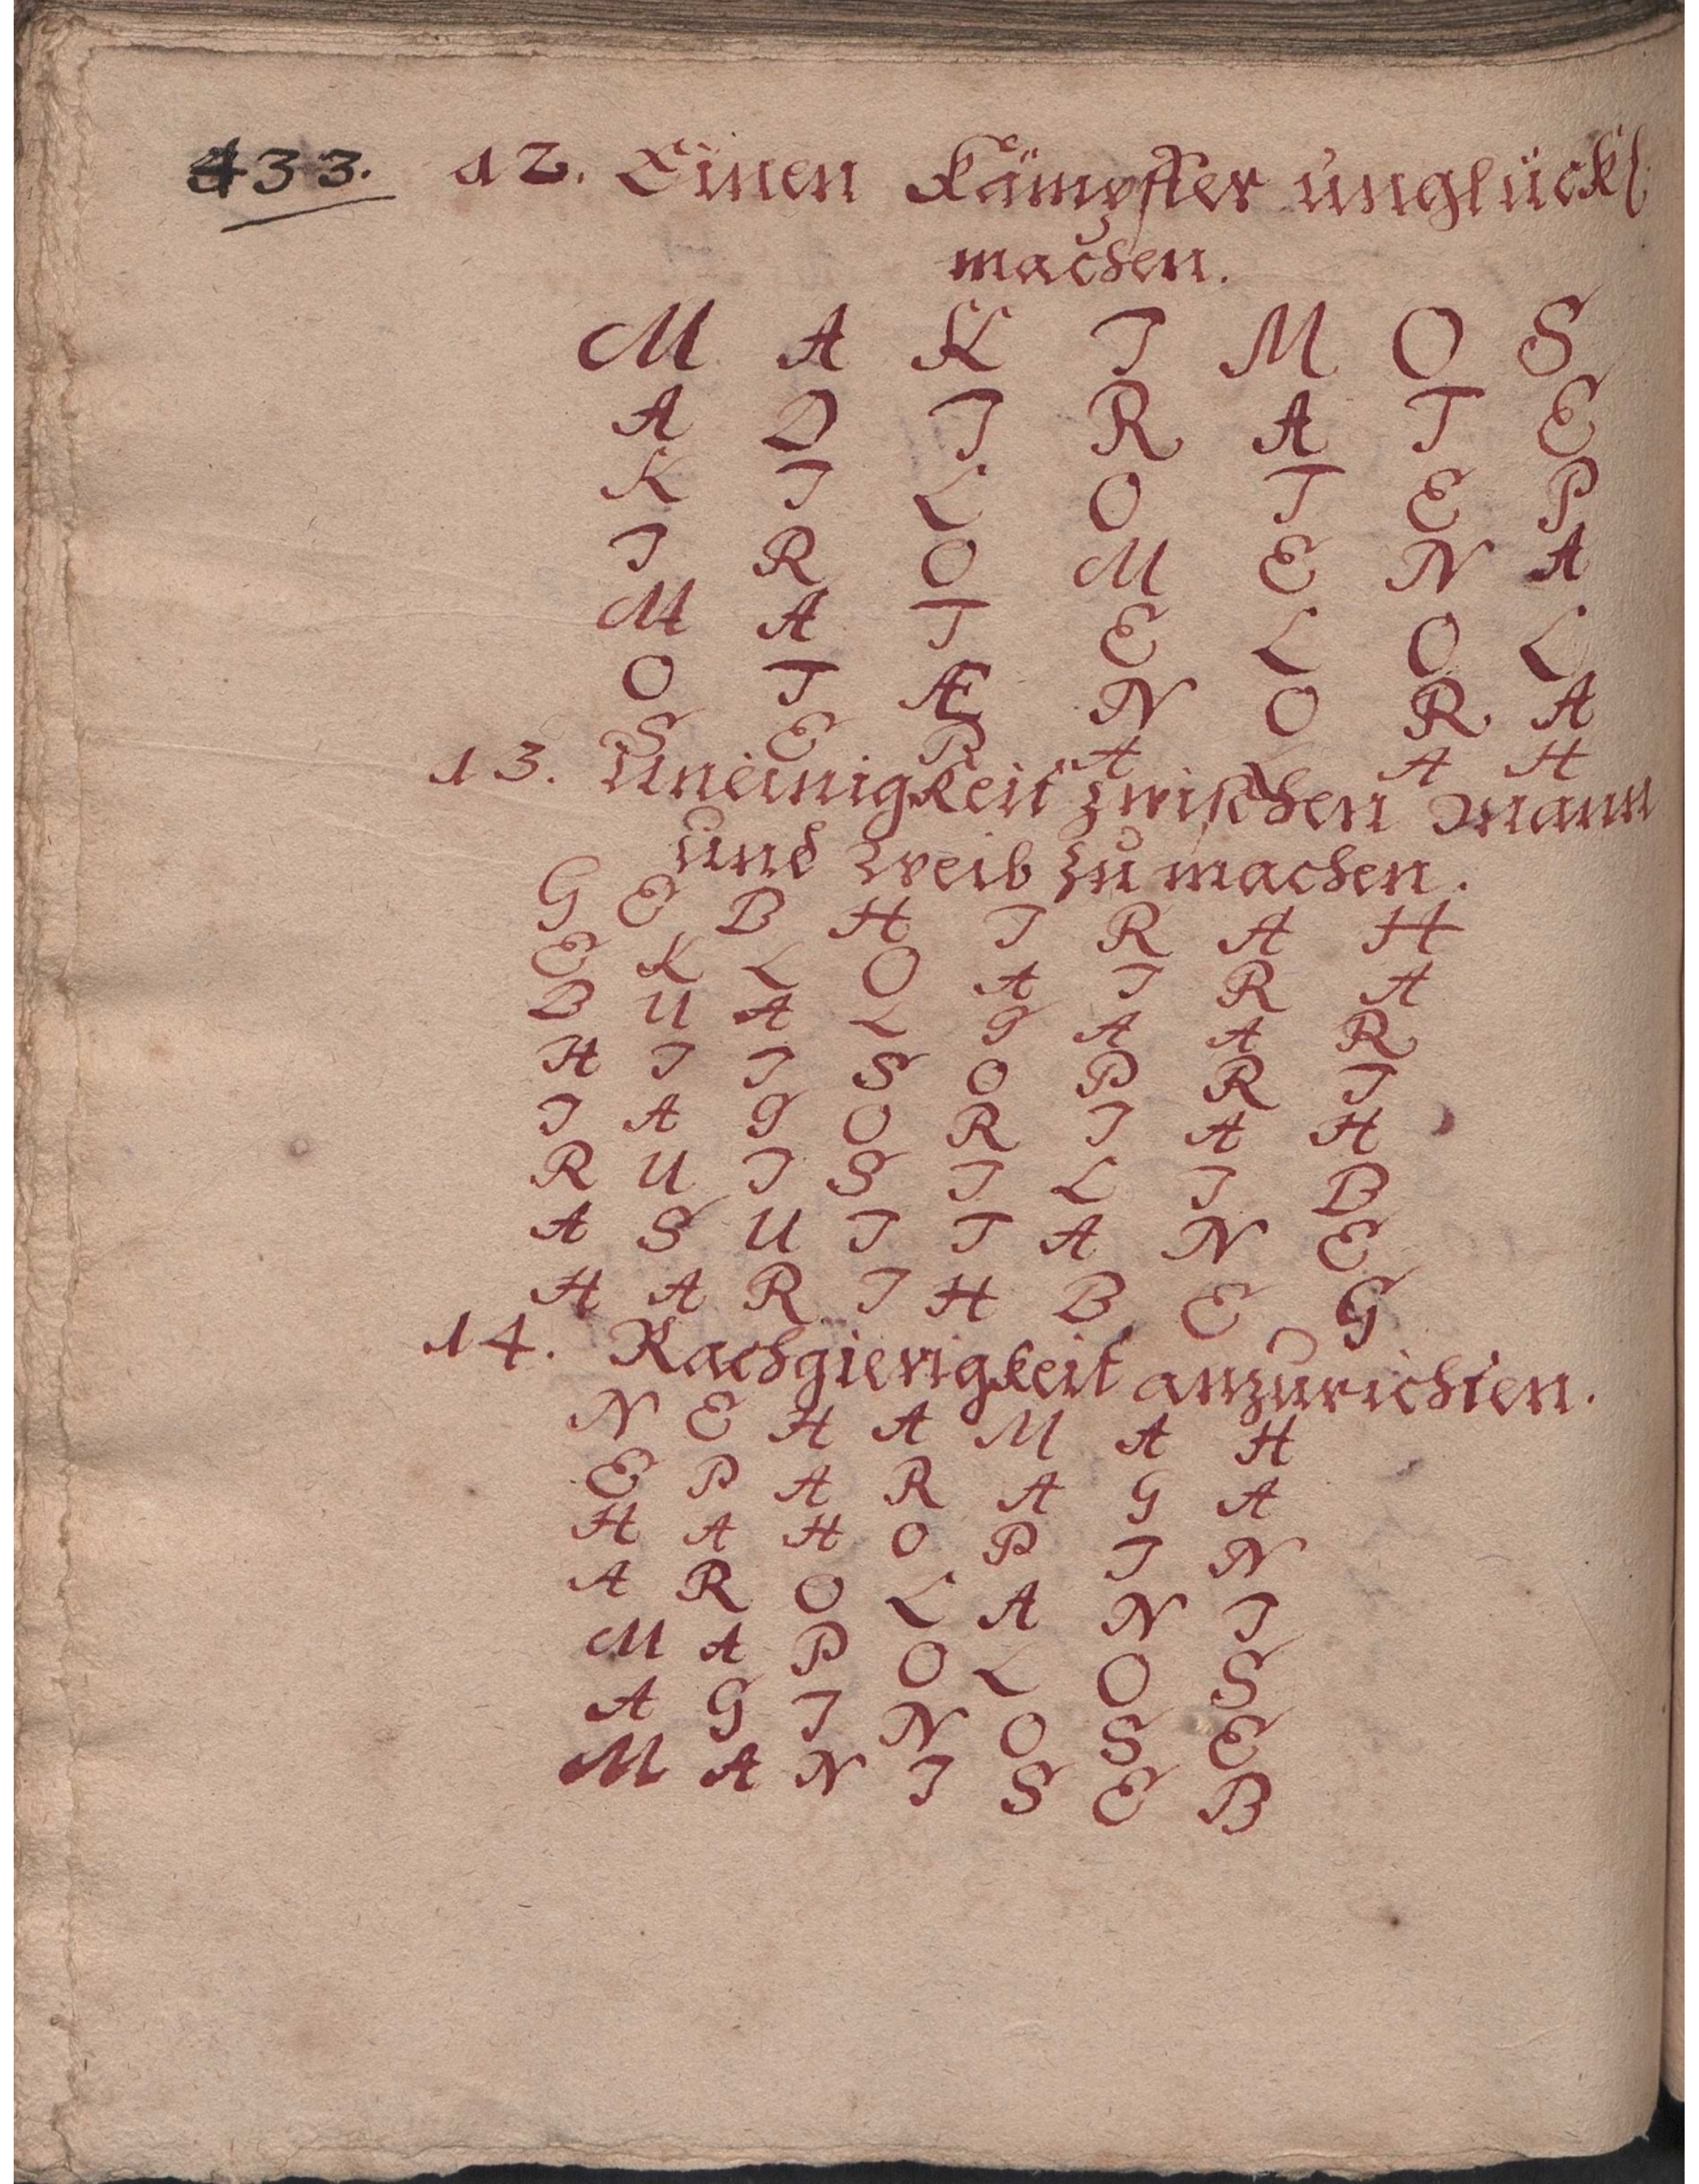 433. 12. Einen Kämpffer unglückl
machen.
M A K I M O S
A D I R A T E
K I L O T E P
I R O M E N A
M A T E L O L
O T Æ N O R A
S E P A L A H
13. Uneinigkeit zwischen Mann
und Weib zu machen.
G E B H I R A H
E K L O A I R A
B U A L G A A R
H I I S O P R I
I A G O R I A H
R U I S I L I B
A S U I T A N E
H A R I H B E G
14. Rachgierigkeit anzurichten.
N E H A M A H
E P A R A G A
H A H O P I N
A R O L A N I
M A P O L O S
A G I N O S E
M A N I S E B